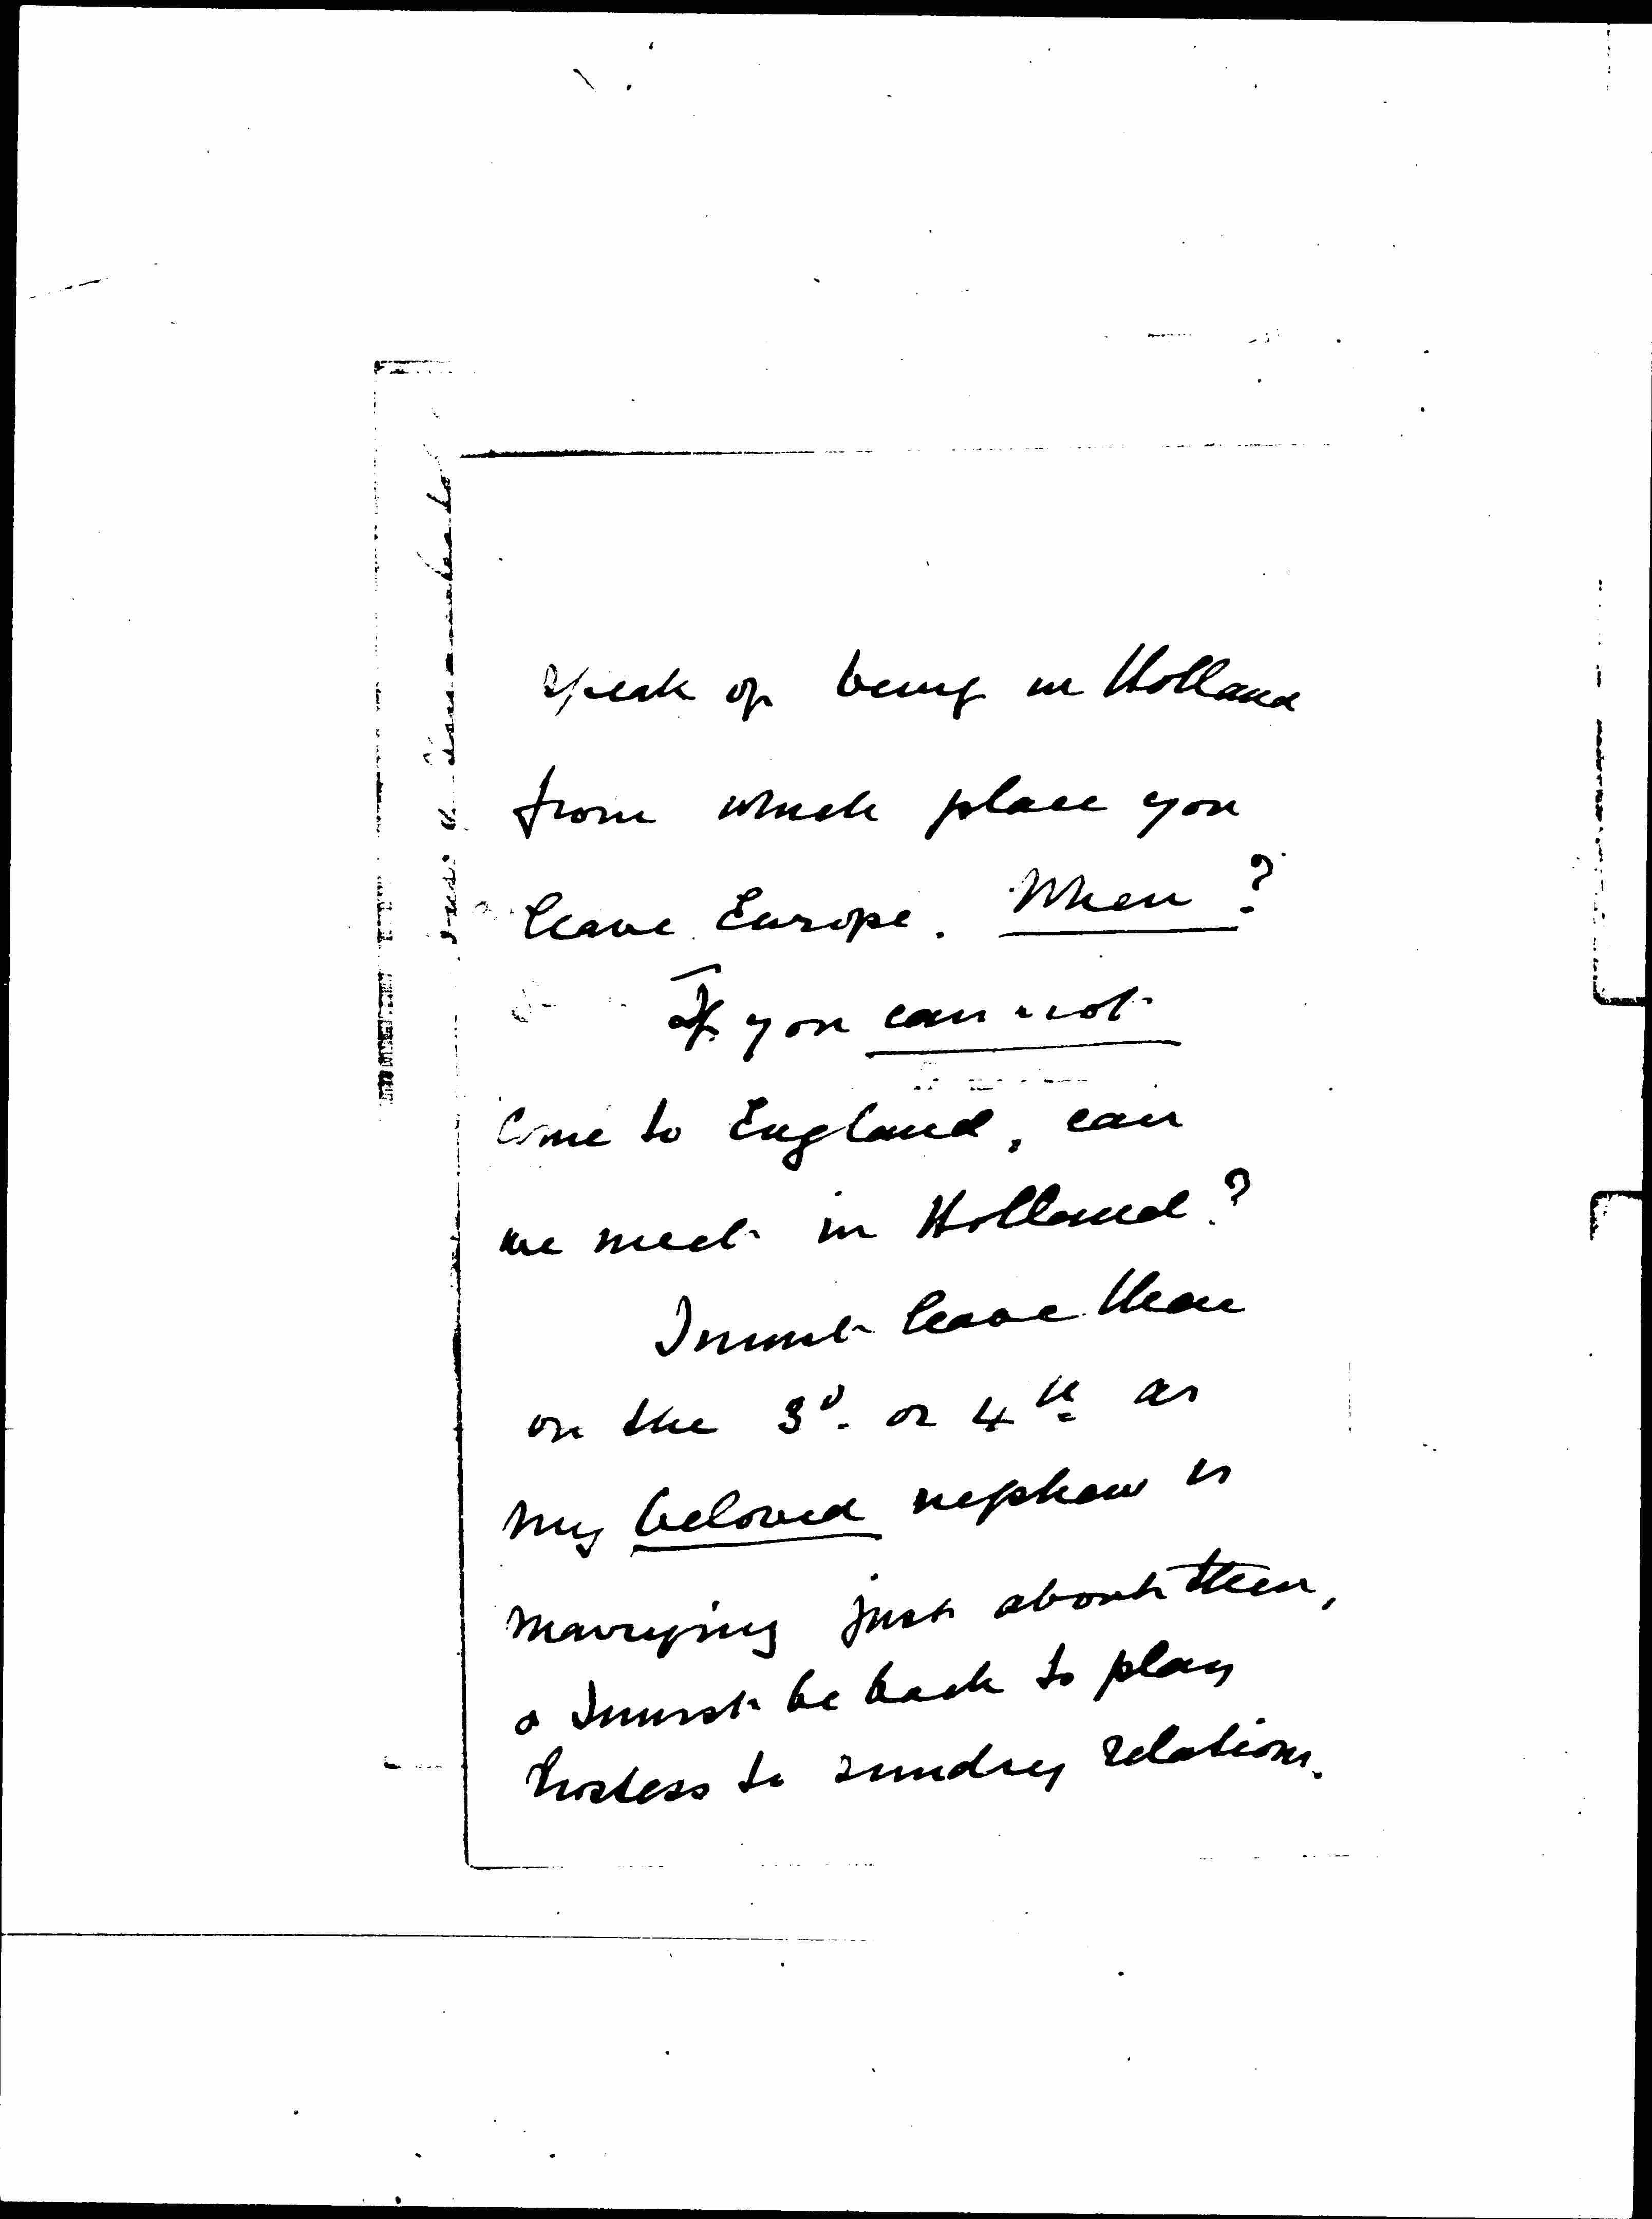 speak of being in Holland
from which place you
leave Europe. When?
If you cannot
come to England, can
we meet in Holland?
I must leave there
on the 3d. or 4th as
my beloved nephew is
marrying just about then,
& I must be back to play
hostess to sundry relations.